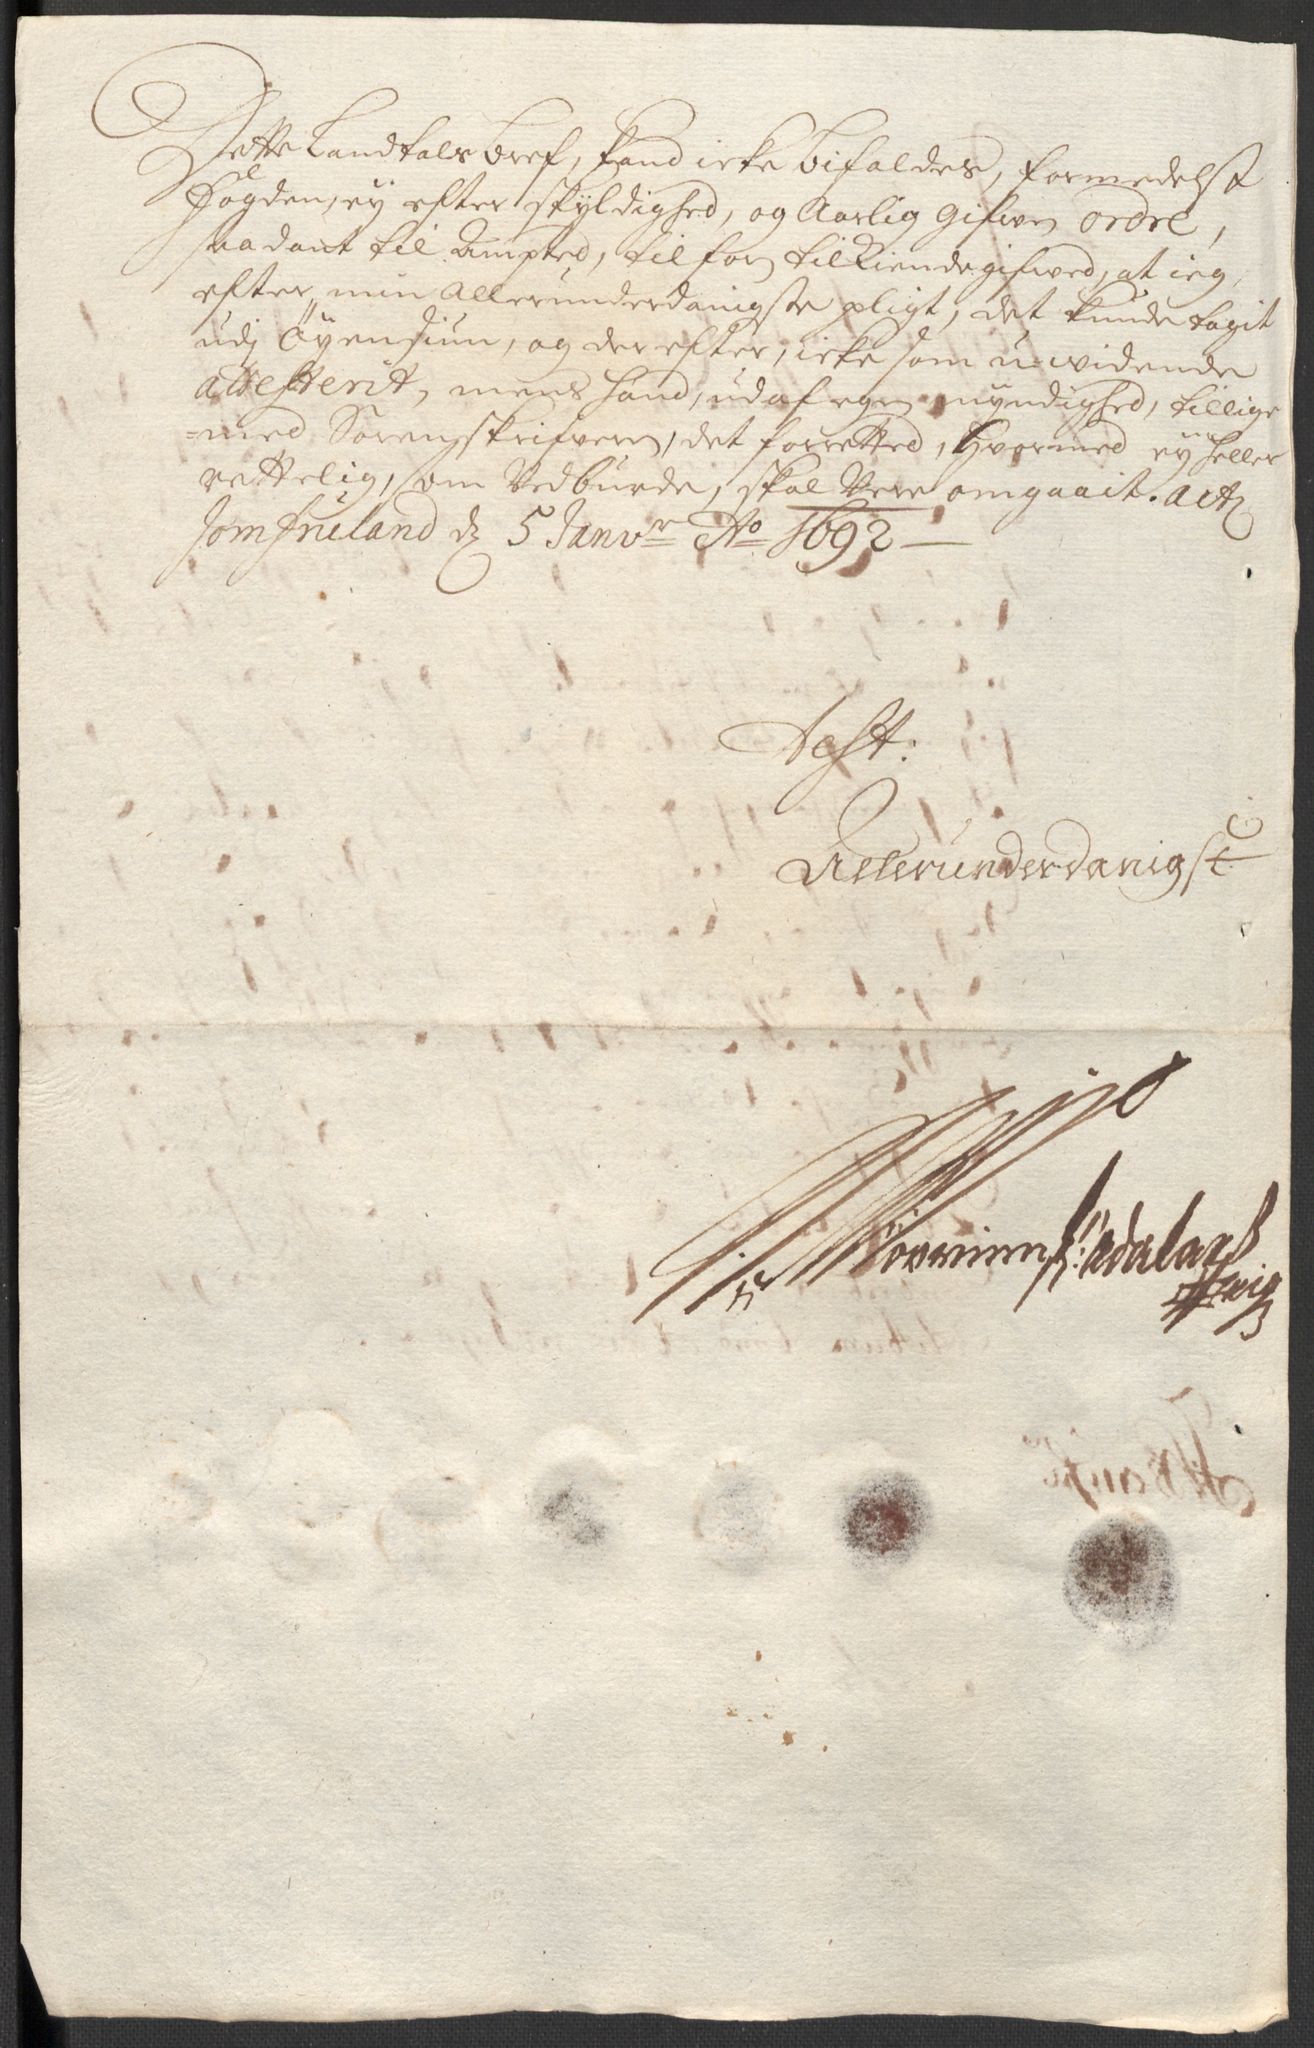 Dette Landtals bref, kand icke bifaldes, formedelst
Fogden, ey efter skyldighed, og Aarlig gifven ordre,
saadant til Ampted, tilforn tilkiendegifved, at ieg,
efter min Allerunderdanigste pligt, det kunde tagit
udj Öyensiun, og derefter, icke som u-widende
attesterit, mens hand, ud af egen myndighed, tillige
=med Sorenskrifveren, det forretted, hvormed ey heller
rettelig, som Vedburde, skal Vere omgaait. Act
Jomfruland d 5 Janvr Ao 1692
Test:
Allerunderdanigst